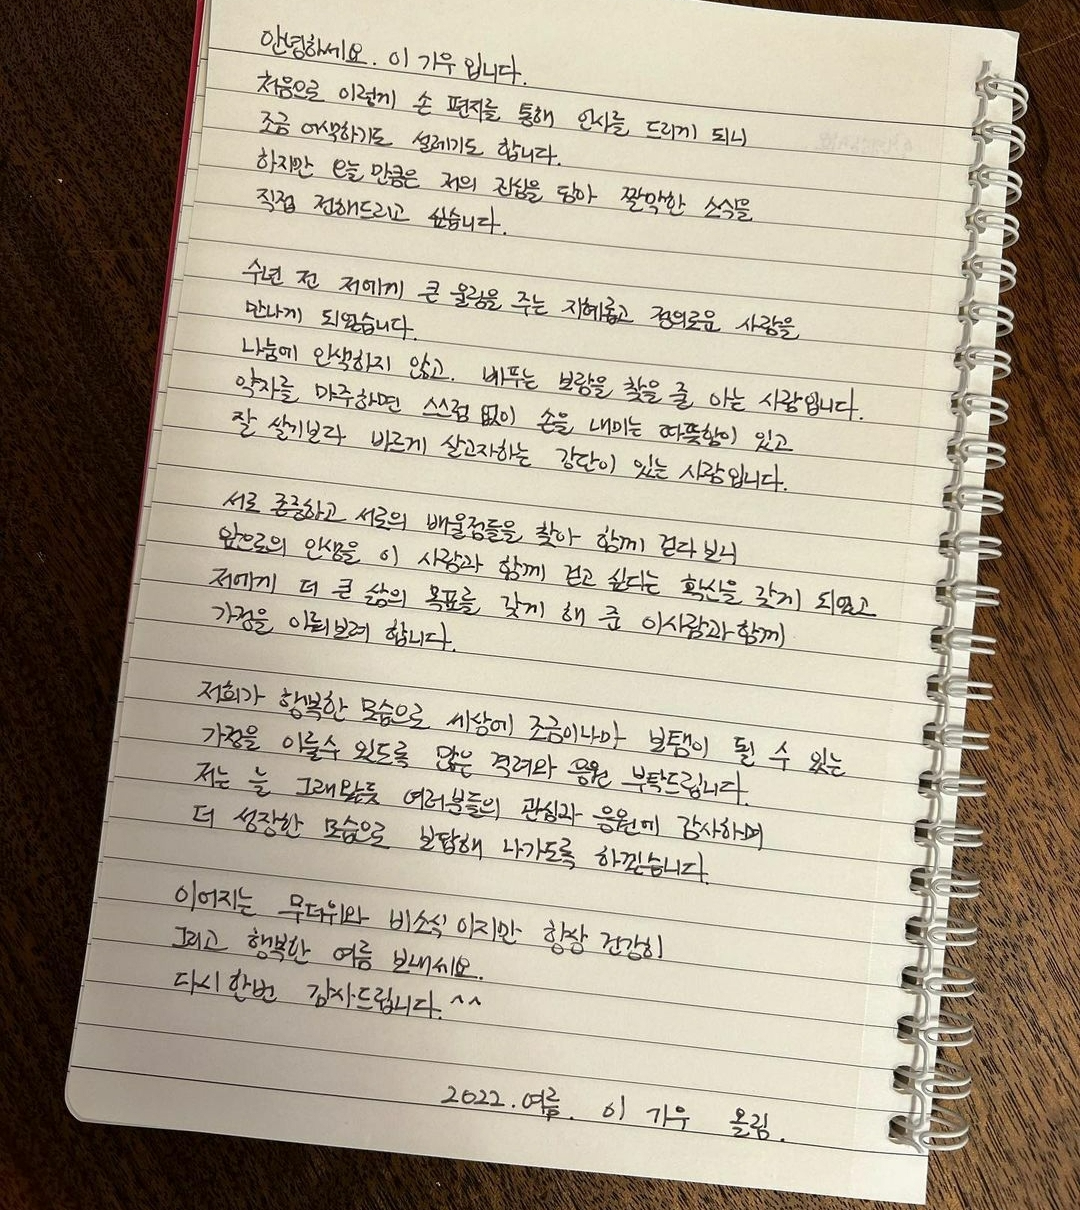 안녕하세요. 이 가우 입니다.
처음으로 이렇게 손 편지를 통해 인사를 드리게 되니
조금 어색하기도 설레기도 합니다.
하지만 오늘 만큼은 저의 진심을 담아 짤막한 소식을
직접 전해드리고 싶습니다.
수년 전 저에게 큰 울림을 주는 지혜롭고 정의로운 사람을
만나게 되었습니다.
나눔에 인색하지 않고. 베푸는 보람을 찾을 줄 아는 사람입니다.
약자를 마주하면 스스럼 없이 손을 내미는 따뜻함이 있고
잘 살기보다 바르게 살고자하는 강단이 있는 사람입니다.
서로 존중하고 서로의 배울점들을 찾아 함께 걷다 보니
앞으로의 인생을 이 사람과 함께 걷고 싶다는 확신을 갖게 되었고
저에게 더 큰 삶의 목표를 갖게 해 준 이사람과 함께
가정을 이뤄보려 합니다.
저희가 행복한 모습으로 세상에 조금이나마 보탬이 될 수 있는
가정을 이룰수 있도록 많은 격려와 응원 부탁드립니다.
저는 늘 그래왔듯 여러분들의 관심과 응원에 감사하며
더 성장한 모습으로 보답해 나가도록 하겠습니다.
이어지는 무더위와 비소식 이지만 항상 건강히
그리고 행복한 여름 보내세요.
다시 한번 감사드립니다. ^^
2022. 여름. 이 가우 올림.